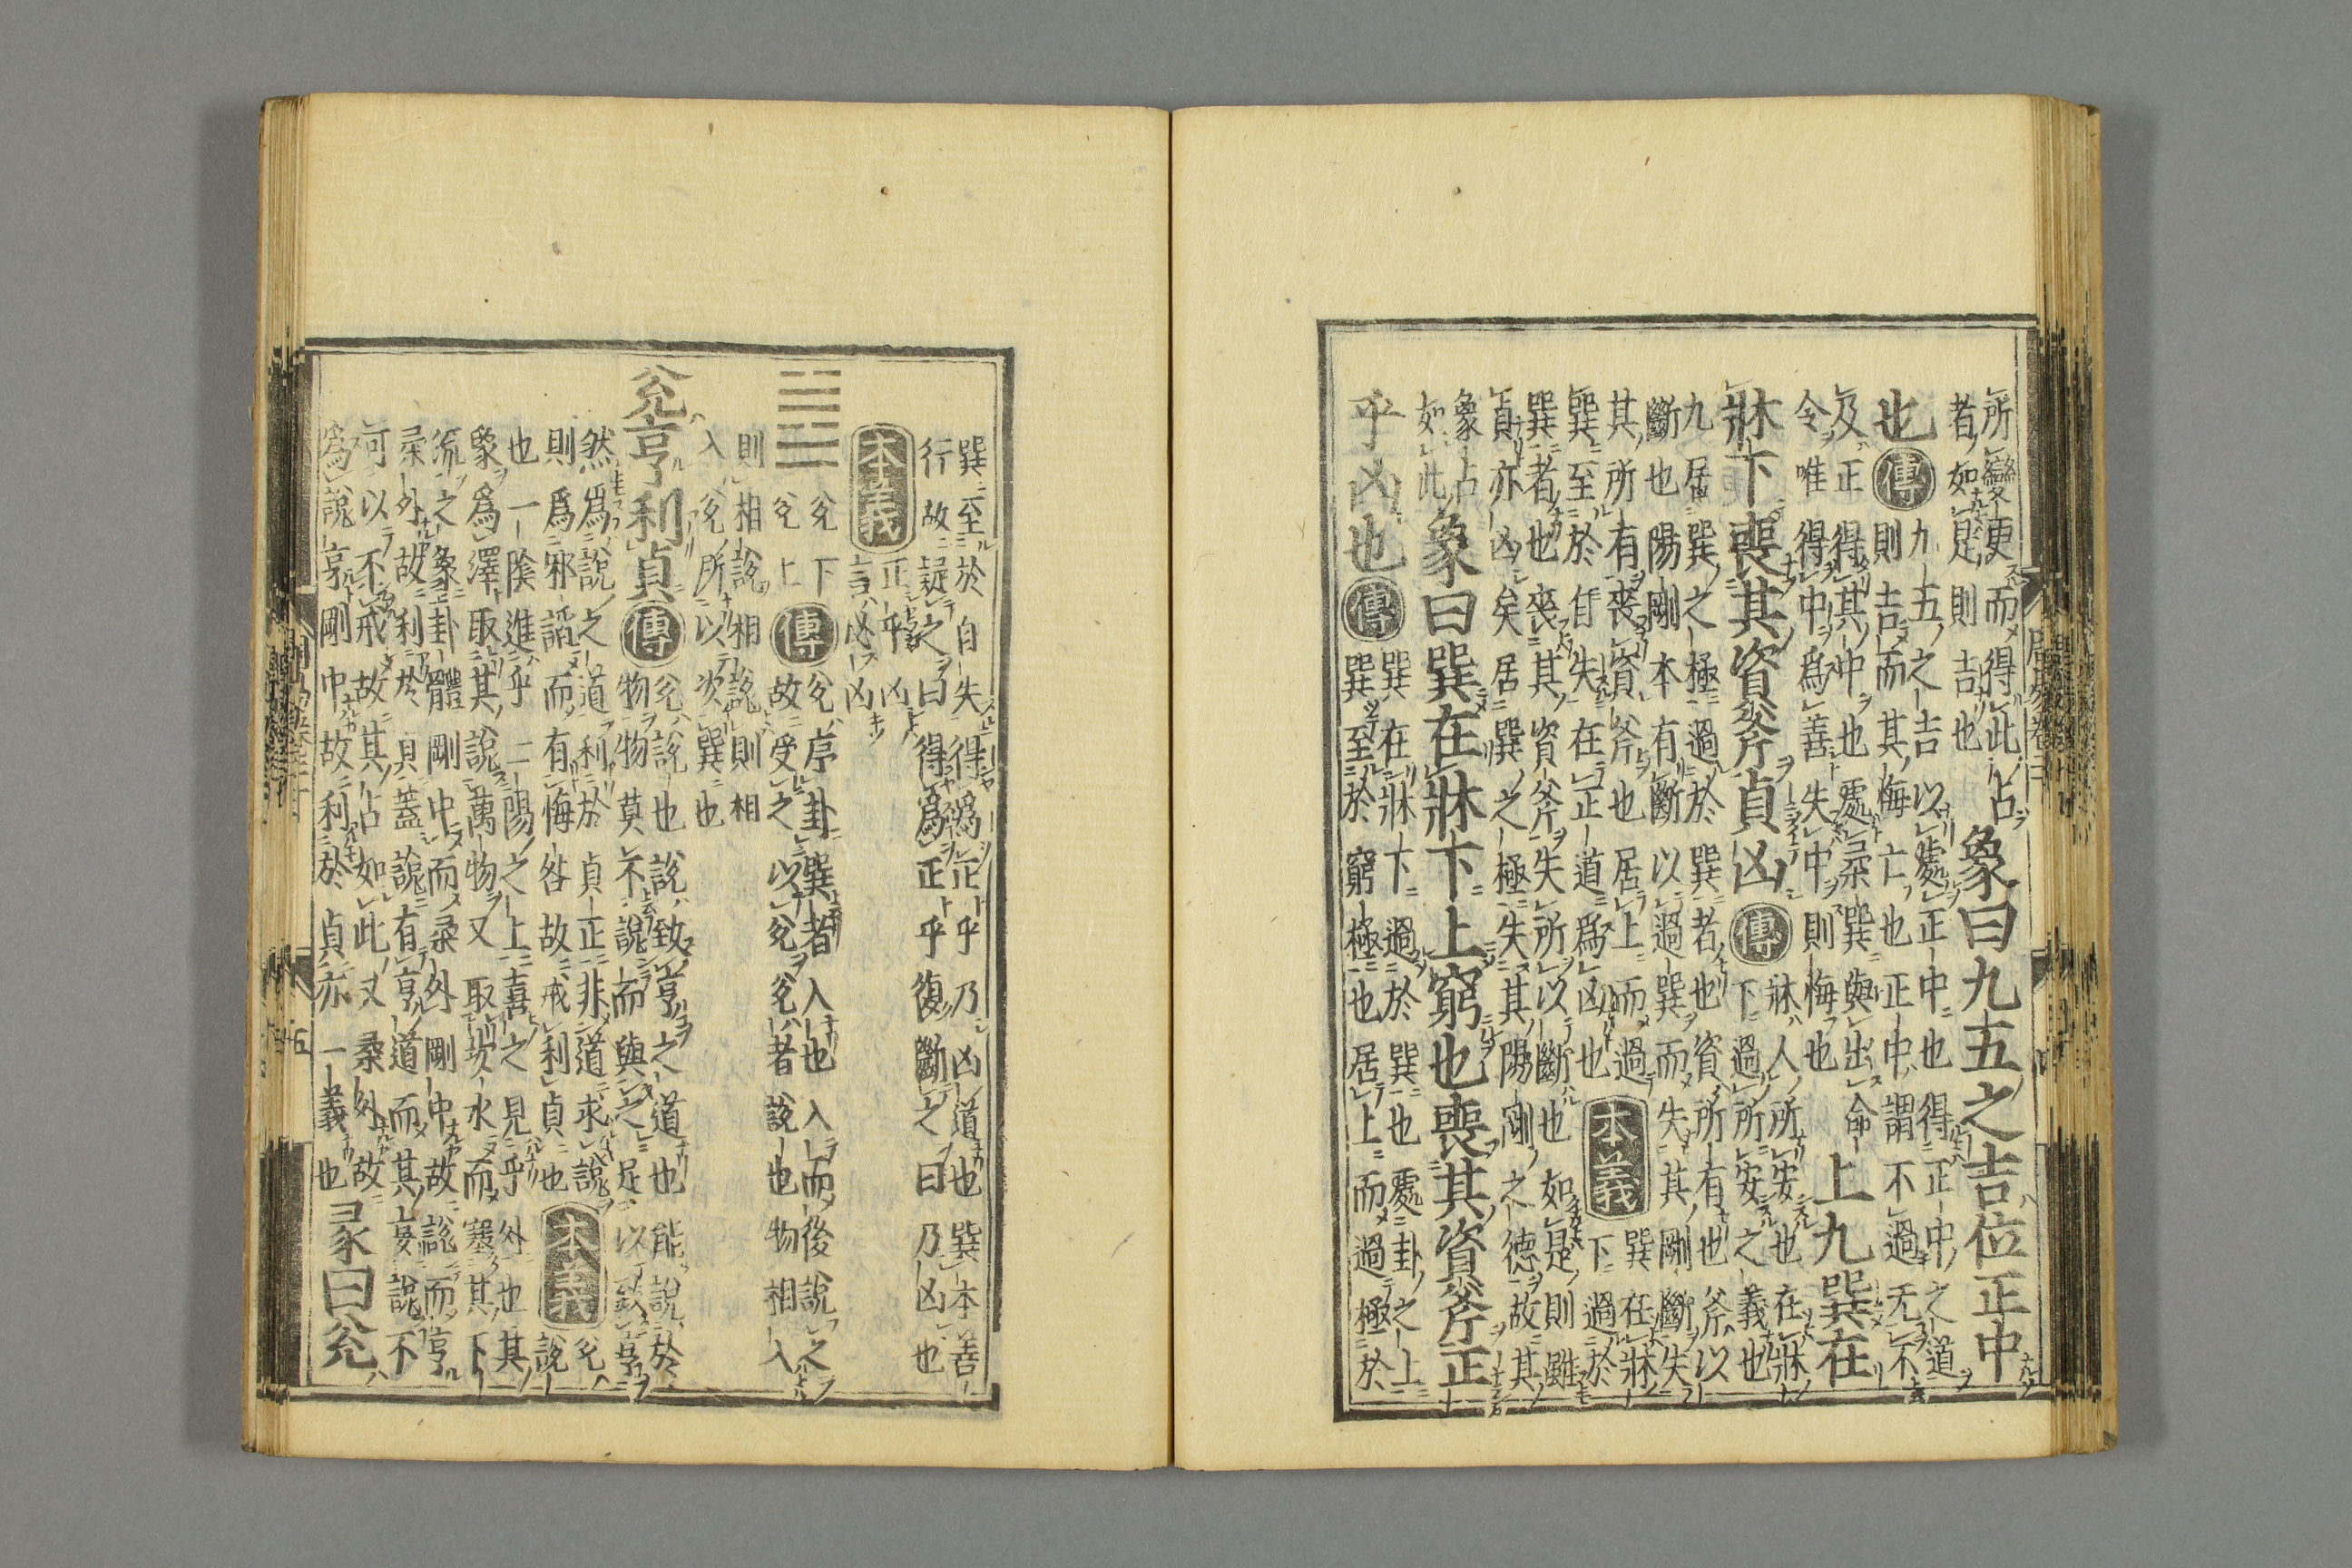 所變更而得此占
者如是則吉也
象曰九五之吉位正中
也傳
九五之吉以處正中也得正中之道
則吉而其悔亡也正中謂不過无不
及正得其中也處柔巽與出命
令唯得中爲善失中則悔也
上九巽在
牀下喪其資斧貞凶傳
牀人所安也在牀
下過所安之義也
九居巽之極過於巽者也資所有也斧以
斷也陽剛本有斷以過巽而失其剛斷失
其所有喪資斧也居上而過
巽至於自失在正道爲凶也
本義
巽在牀
下過於
巽者也喪其資斧失所以斷也如是則雖
貞亦凶矣居巽之極失其陽剛之德故其
象占
如此
象曰巽在牀下上窮也喪其資斧正
乎凶也傳
巽在牀下過於巽也處卦之上
巽至於窮極也居上而過極於
巽至於自失得爲正乎乃凶道也巽本善
行故疑之曰得爲正乎復斷之曰乃凶也
本義
正乎凶
言必凶
兌下
兌上
傳
兌序卦巽者入也入而後說之
故受之以兌兌者說也物相入
則相說相說則相
入兌所以次巽也
兌亨利貞傳
兌說也說致亨之道也能說於
物物莫不說而與之足以致亨
然爲說之道利於貞正非道求說
則爲邪諂而有悔咎故戒利貞也
本義
兌
說
也一陰進乎二陽之上喜之見乎外也其
象爲澤取其說萬物又取坎水而塞其下
流之象卦體剛中而柔外剛中故說而亨
柔外故利於貞蓋說有亨道而其妄說不
可以不戒故其占如此又柔外故
爲說亨剛中故利於貞亦一義也
彖曰兌